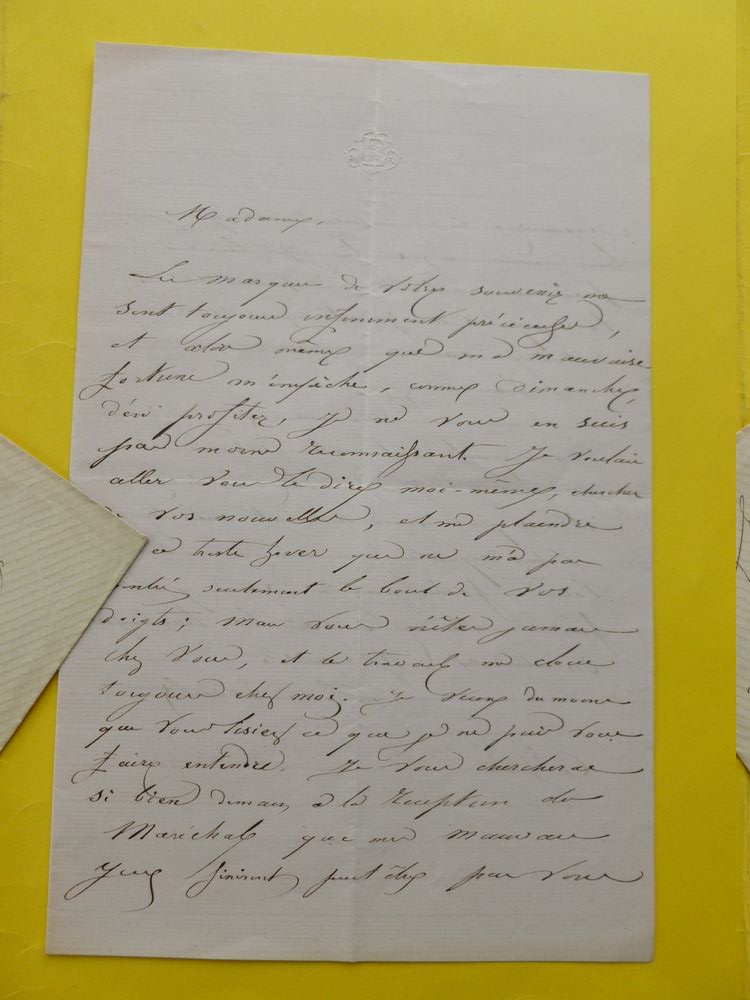 Madame,
Les marques de votre souvenir me
sont toujours infiniment précieuses,
et alors même que ma mauvaise
fortune m'empêche, comme Dimanche,
d'en profiter, je ne vous en suis
pas moins reconnaissant. Je voulais
aller vous le dire moi-même, chercher
de vos nouvelles, et me plaindre
ce triste hiver que ne m'a pas
seulement le bout de vos
doigts; mais vous n'êtes jamais
chez vous, et le travail me cloue
toujours chez moi. Je veux du moins
que vous lisiez ce que je ne puis vous
faire entendre. Je vous chercherai
si bien demain, à la réception du
Maréchal que mes mauvais
yeux finiront peut être par vous